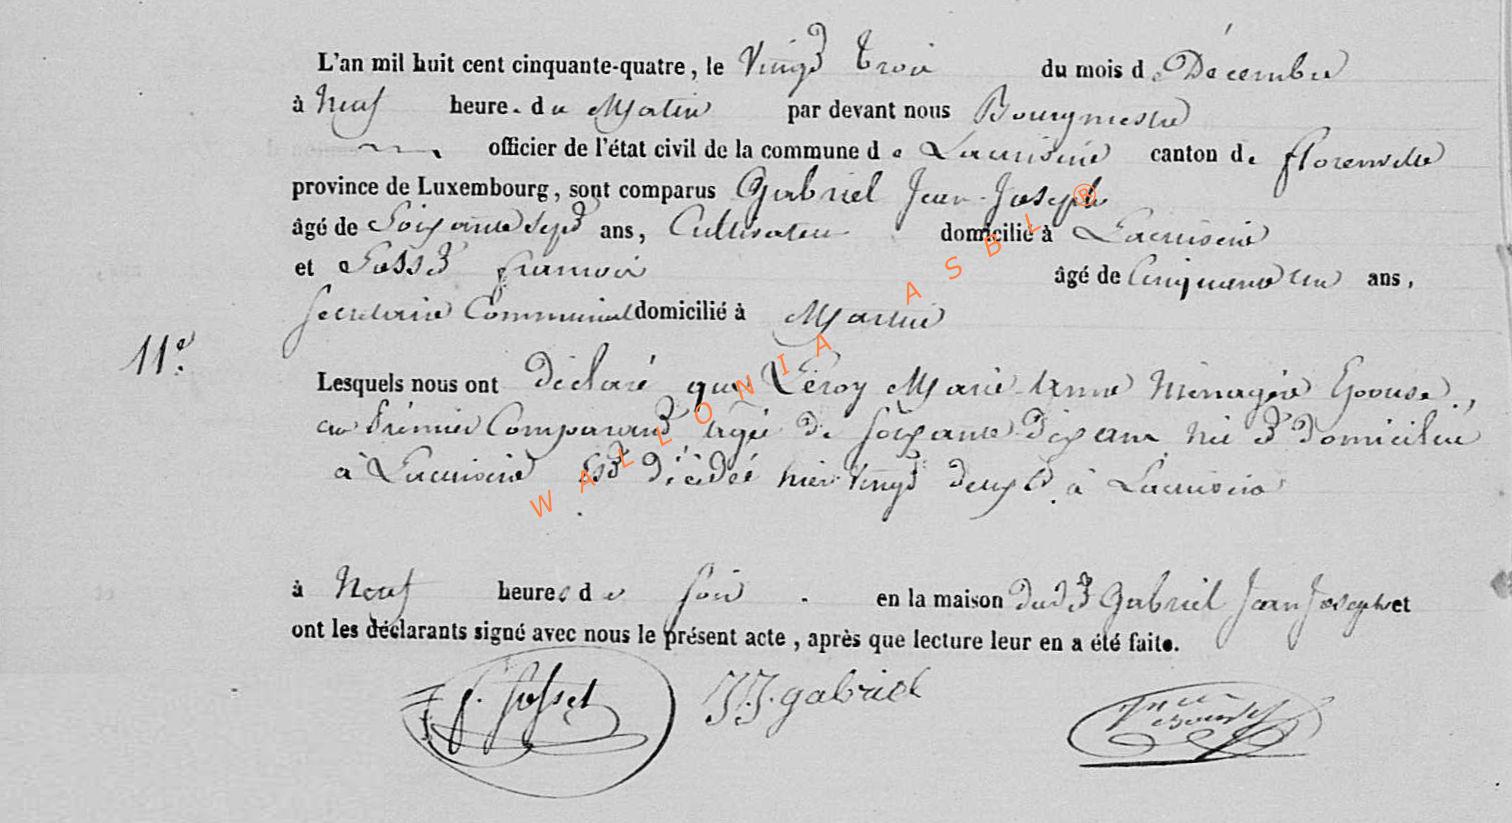 L'an mil huit cent cinquante-quatre, le Vingt trois du mois de Décembre
à Neuf heures du Matin par devant nous Bourgmestre
officier de l'état civil de la commune de Lacuisine canton de florenville
province de Luxembourg, sont comparus Gabriel Jean-Joseph
âgé de Soixante Sept ans, Cultivateur domicilié à Lacuisine
et Josset françois âgé de Cinquante un ans,
Secretaire Communal domicilié à Martué
11e.
Lesquels nous ont déclaré que Leroy Marie-Anne Ménagère Epouse
au Prémier Comparant agée de soixante-dix ans née et domiciliée
à Lacuisine Est décédée hier vingt deux à Lacuisine
à Neuf heures du soir en la maison dudt Gabriel Jean Joseph et
ont les déclarants signé avec nous le présent acte, après que lecture leur en a été faite.
f. Josset J.J. gabriel
WALLONIA ASBL ®